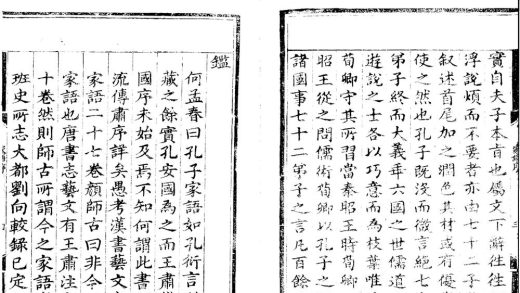 實自夫子本旨也屬文下辭往往
浮說煩而不要者亦由七十二子
叙述首尾加之潤色其材或有優
使之然也孔子既沒而微言絕七
弟子終而大義乖六國之世儒道
遊說之士各以巧意而為枝葉唯
荀卿守其所習當秦昭王時荀卿
昭王從之問儒術荀卿以孔子之
諸國事七十二弟子之言凡百餘
鑑
何孟春曰孔子家語如孔衍言
藏之餘實孔安國為之而王肅
國序未始及焉不知何謂此書
流傳肅序詳矣愚考漢書藝文
家語二十七卷顔師古曰非今
家語也唐書志藝文有王肅注
十卷然則師古所謂今之家語
班史所志大都劉向較錄已定